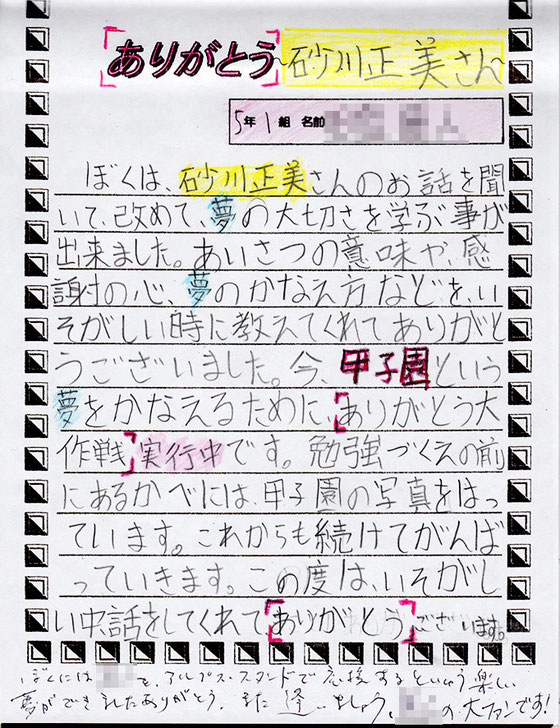 ありがとう 砂川正美さんへ
5年 1組 名前
ぼくは、砂川正美さんのお話を聞
いて、改めて、夢の大切さを学ぶ事が
出来ました。あいさつの意味や、感
謝の心、夢のかなえ方などを、い
そがしい時に教えてくれてありがと
うございました。今、甲子園という
夢をかなえるために、ありがとう大
作戦実行中です。勉強づくえの前
にあるかべには、甲子園の写真をはっ
ています。これからも続けてがんば
っていきます。この度は、いそがし
い中話をしてくれて、ありがとうございます。
ぼくには を、アルプス・スタンドで応援するという楽しい
夢ができましたありがとう。また逢いましょう、 の大ファンです!